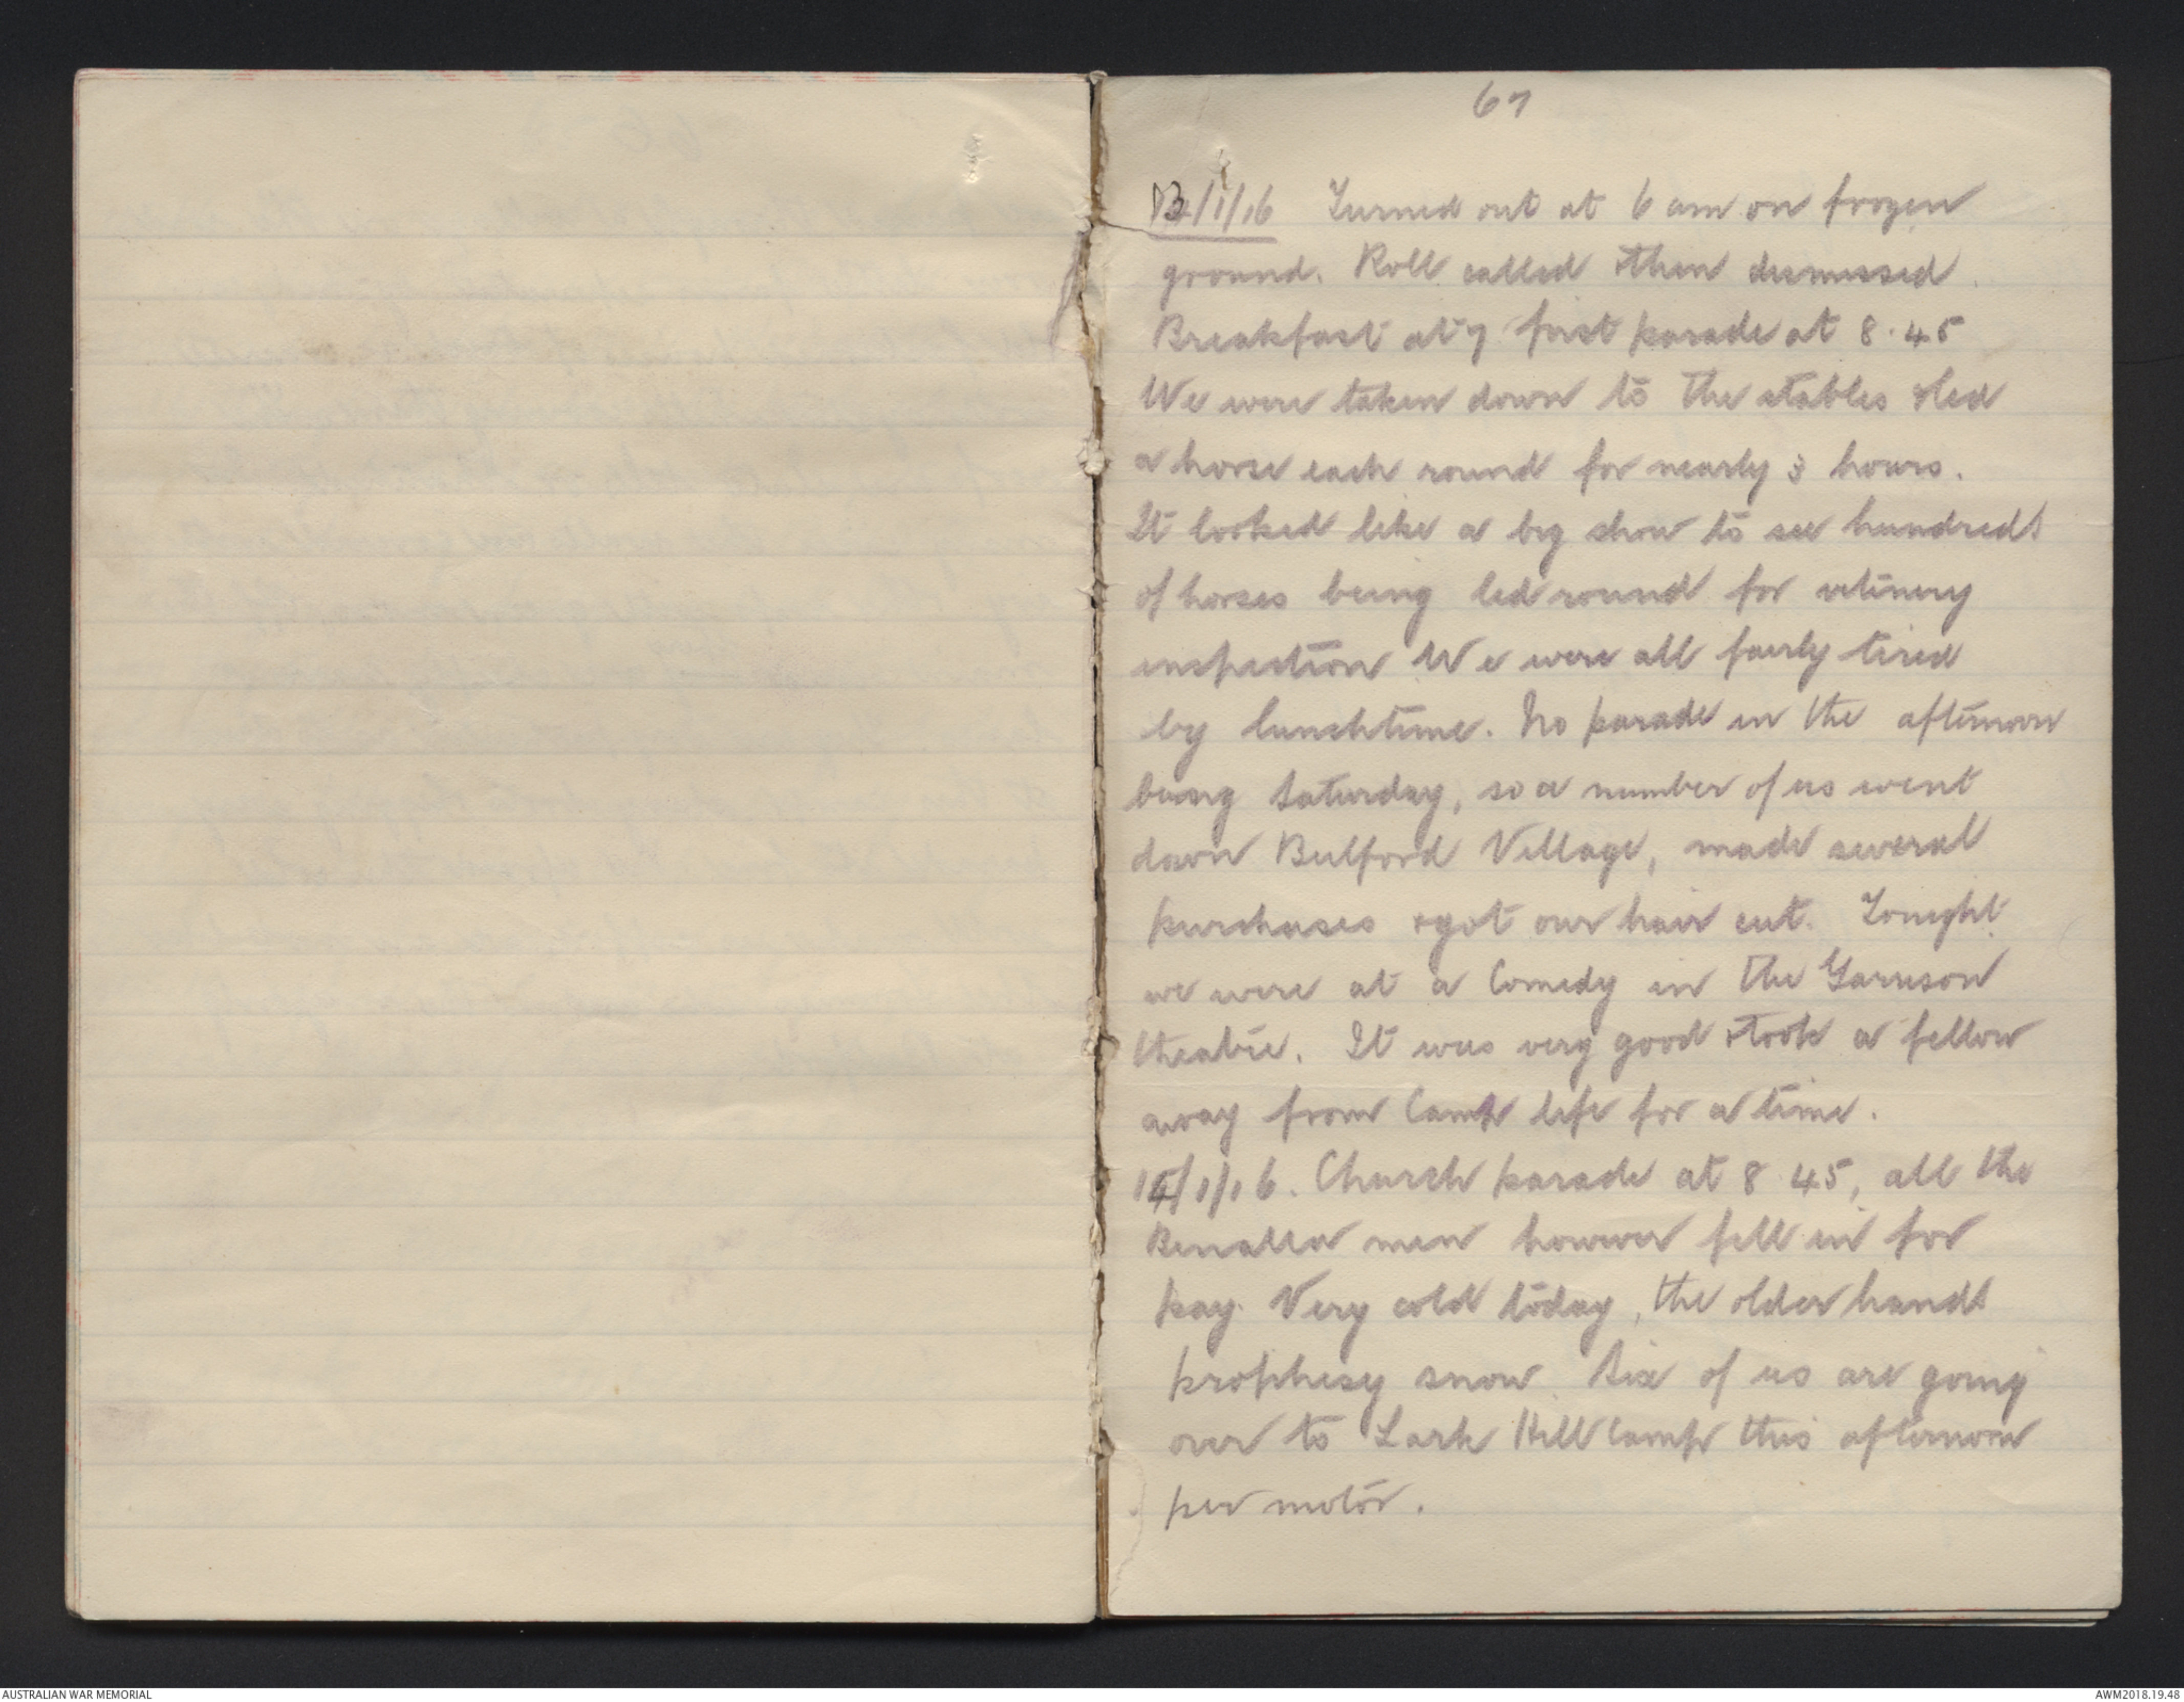 67
13/1/16 Turned out at 6 am on frozen
ground. Roll called & then dismissed.
Breakfast at 7 first parade at 8.45
We were taken down to the stables & led
a horse each round for nearly 3 hours.
It looked like a big show to see hundreds
of horses being led round for vetinery
inspection We were all fairly tired
by lunchtime. No parade in the afternoon
being Saturday, so a number of us went
down Bulford Village, made several
purchases & got our hair cut. Tonight
we were at a Comedy in the Garrison
theatre. It was very good & took a fellow
away from Camp life for a time.
14/1/16. Church parade at 8.45, all the
Benalla men however fell in for
pay. Very cold today, the older hands
prophesy snow. Six of us are going
over to Lark Hill Camp this afternoon
per motor.
AUSTRALIAN WAR MEMORIAL
AWM2018.19.48